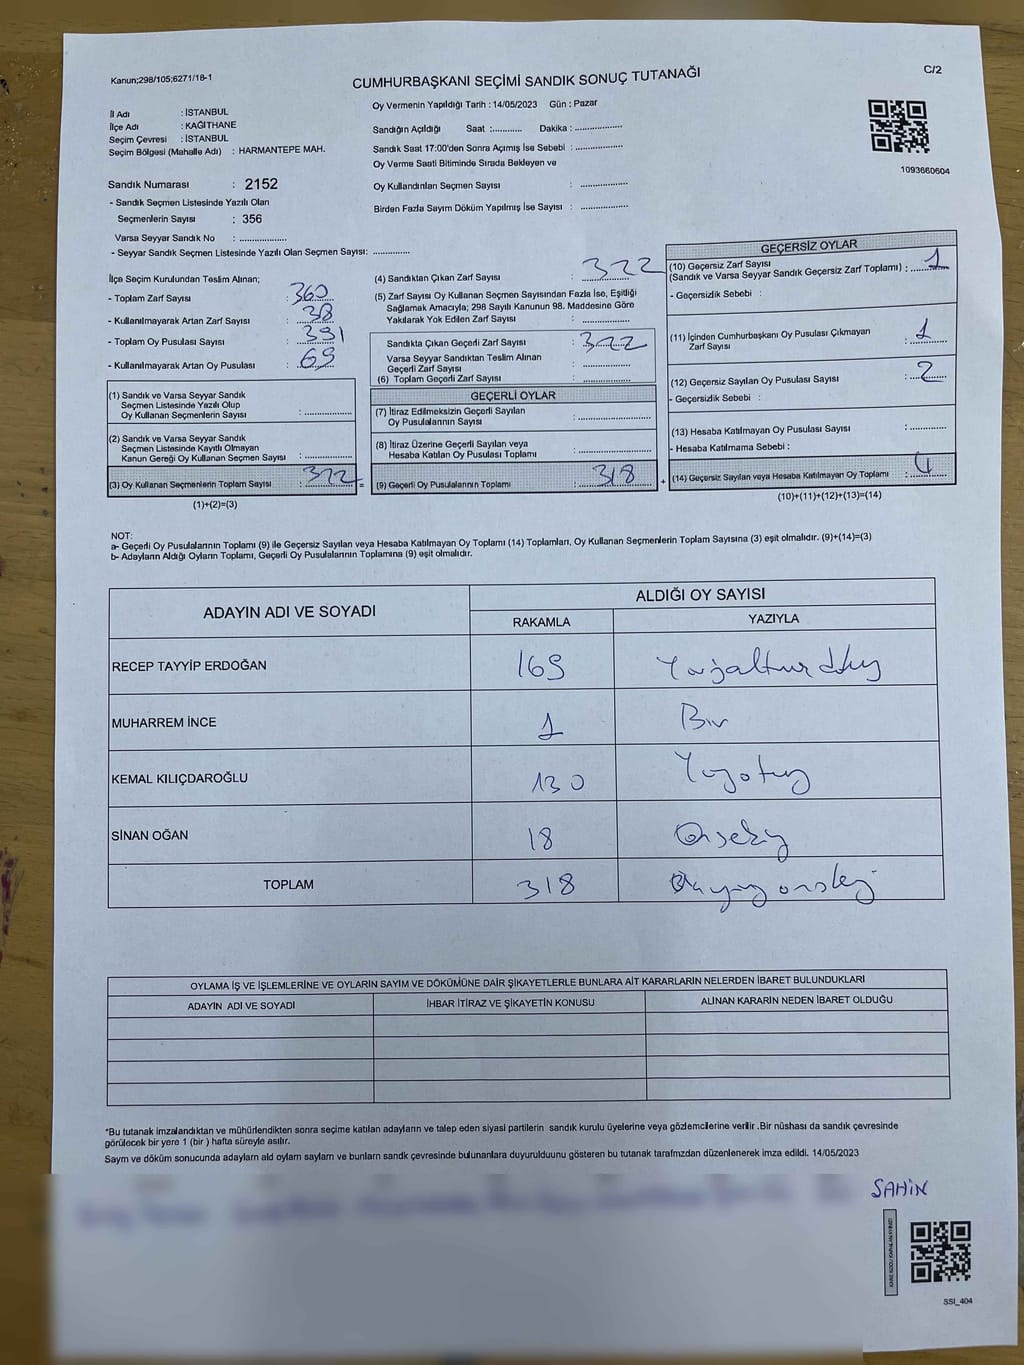 Kanun;298/105;6271/18-1
CUMHURBAŞKANI SEÇİMİ SANDIK SONUÇ TUTANAĞI
C/2
İl Adı : İSTANBUL
İlçe Adı : KAĞITHANE
Seçim Çevresi : İSTANBUL
Seçim Bölgesi (Mahalle Adı) : HARMANTEPE MAH.
Oy Vermenin Yapıldığı Tarih : 14/05/2023 Gün : Pazar
Sandığın Açıldığı Saat :............ Dakika : ..................
Sandık Saat 17:00'den Sonra Açımış İse Sebebi : ..................
Oy Verme Saati Bitiminde Sırada Bekleyen ve
Oy Kullandırılan Seçmen Sayısı : ..................
Birden Fazla Sayım Döküm Yapılmış İse Sayısı : ..................
1093660604
Sandık Numarası : 2152
- Sandık Seçmen Listesinde Yazılı Olan
Seçmenlerin Sayısı : 356
Varsa Seyyar Sandık No : ..................
- Seyyar Sandık Seçmen Listesinde Yazılı Olan Seçmen Sayısı: ..............
İlçe Seçim Kurulundan Teslim Alınan;
- Toplam Zarf Sayısı : 360
- Kullanılmayarak Artan Zarf Sayısı : 38
- Toplam Oy Pusulası Sayısı : 391
- Kullanılmayarak Artan Oy Pusulası : 69
(1) Sandık ve Varsa Seyyar Sandık
Seçmen Listesinde Yazılı Olup
Oy Kullanan Seçmenlerin Sayısı : ..................
(2) Sandık ve Varsa Seyyar Sandık
Seçmen Listesinde Kayıtlı Olmayan
Kanun Gereği Oy Kullanan Seçmen Sayısı : ..................
(3) Oy Kullanan Seçmenlerin Toplam Sayısı : 322 =
(1)+(2)=(3)
(4) Sandıktan Çıkan Zarf Sayısı : 322
(5) Zarf Sayısı Oy Kullanan Seçmen Sayısından Fazla İse, Eşitliği
Sağlamak Amacıyla; 298 Sayılı Kanunun 98. Maddesine Göre
Yakılarak Yok Edilen Zarf Sayısı : ..................
Sandıkta Çıkan Geçerli Zarf Sayısı : 322
Varsa Seyyar Sandıktan Teslim Alınan
Geçerli Zarf Sayısı : ..................
(6) Toplam Geçerli Zarf Sayısı : ..................
GEÇERLİ OYLAR
(7) İtiraz Edilmeksizin Geçerli Sayılan
Oy Pusulalarının Sayısı : ..................
(8) İtiraz Üzerine Geçerli Sayılan veya
Hesaba Katılan Oy Pusulası Toplamı : ..................
(9) Geçerli Oy Pusulalarının Toplamı : 318 +
GEÇERSİZ OYLAR
(10) Geçersiz Zarf Sayısı
(Sandık ve Varsa Seyyar Sandık Geçersiz Zarf Toplamı) : 1
- Geçersizlik Sebebi :
(11) İçinden Cumhurbaşkanı Oy Pusulası Çıkmayan
Zarf Sayısı : 1
(12) Geçersiz Sayılan Oy Pusulası Sayısı : 2
- Geçersizlik Sebebi :
(13) Hesaba Katılmayan Oy Pusulası Sayısı : ............
- Hesaba Katılmama Sebebi :
(14) Geçersiz Sayılan veya Hesaba Katılmayan Oy Toplamı : 4
(10)+(11)+(12)+(13)=(14)
NOT:
a- Geçerli Oy Pusulalarının Toplamı (9) ile Geçersiz Sayılan veya Hesaba Katılmayan Oy Toplamı (14) Toplamları, Oy Kullanan Seçmenlerin Toplam Sayısına (3) eşit olmalıdır. (9)+(14)=(3)
b- Adayların Aldığı Oyların Toplamı, Geçerli Oy Pusulalarının Toplamına (9) eşit olmalıdır.
ADAYIN ADI VE SOYADI
ALDIĞI OY SAYISI
RAKAMLA YAZIYLA
RECEP TAYYİP ERDOĞAN 169
MUHARREM İNCE 1 Bir
KEMAL KILIÇDAROĞLU 130 Yüzotuz
SİNAN OĞAN 18 Onsekiz
TOPLAM 318
OYLAMA İŞ VE İŞLEMLERİNE VE OYLARIN SAYIM VE DÖKÜMÜNE DAİR ŞİKAYETLERLE BUNLARA AİT KARARLARIN NELERDEN İBARET BULUNDUKLARI
ADAYIN ADI VE SOYADI İHBAR İTİRAZ VE ŞİKAYETİN KONUSU ALINAN KARARIN NEDEN İBARET OLDUĞU
*Bu tutanak imzalandıktan ve mühürlendikten sonra seçime katılan adayların ve talep eden siyasi partilerin sandık kurulu üyelerine veya gözlemcilerine verilir .Bir nüshası da sandık çevresinde
görülecek bir yere 1 (bir ) hafta süreyle asılır.
Sayım ve döküm sonucunda adayların ald oyların sayların ve bunların sandk çevresinde bulunanlara duyurulduunu gösteren bu tutanak tarafmzdan düzenlenerek imza edildi. 14/05/2023
ŞAHİN
SSI_404